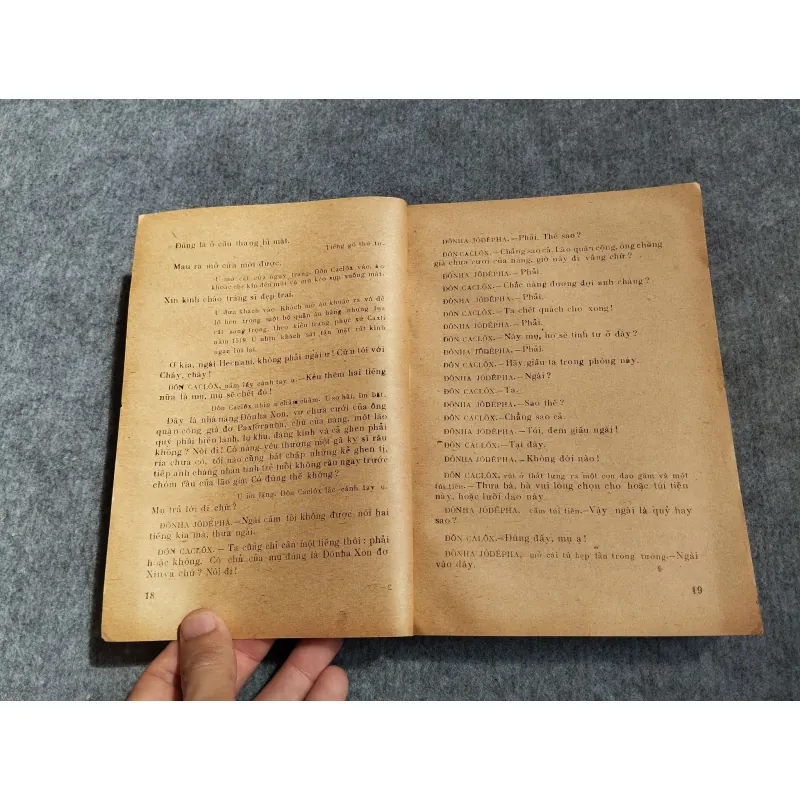 Đúng là ở cầu thang bí mật.
Tiếng gõ thứ tư.
Mau ra mở cửa mới được.
U mở cửa của ngay trang. Đôn Caclôx vào, áo
khoác che kín đến mũi và mũ kéo sụp xuống mắt.
Xin kính chào tráng sĩ đẹp trai.
U đưa khách vào. Khách mở áo khoác ra và để
lộ bên trong một bộ quần áo bằng nhung lụa
rất sang trọng, theo kiểu trang phục xứ Caxti
năm 1519. U nhìn khách sát tận mặt rồi kinh
ngạc lùi lại.
Ơ kìa, ngài Hecnani, không phải ngài ư! Cứu tôi với
Cháy, cháy!
ĐÔN CACLÔX, nắm lấy cánh tay u.—Kêu thêm hai tiếng
nữa là mụ, mụ sẽ chết đó!
Đôn Caclôx nhìn u chăm chăm. U sợ hãi, im bặt.
Đây là nhà nàng Đônha Xon, vợ chưa cưới của ông
quận công già đơ Paxtơranha, chú của nàng, một lão
quý phái hiền lành, lụ khụ, đáng kính và cả ghen phải
không? Nói đi! Cô nàng yêu thương một gã kỵ sĩ râu
ria chưa có, tối nào cũng bất chấp những kẻ ghen tị,
tiếp anh chàng nhân tình trẻ tuổi không râu ngay trước
chòm râu của lão già. Có đúng thế không?
U im lặng. Đôn Caclôx lắc cánh tay u.
Mụ trả lời đi chứ?
ĐÔNHA JÔDÊPHA.—Ngài cấm tôi không được nói hai
tiếng kia mà, thưa ngài.
ĐÔN CACLÔX. — Ta cũng chỉ cần một tiếng thôi: phải
hoặc không. Cô chủ của mụ đúng là Đônha Xon đơ
Xinva chứ? Nói đi!
18
ĐÔNHA JÔDÊPHA.—Phải. Thế sao?
ĐÔN CACLÔX.—Chẳng sao cả. Lão quận công, ông chồng
già chưa cưới của nàng, giờ này đi vắng chứ?
ĐÔNHA JÔDÊPHA.—Phải.
ĐÔN CACLÔX.— Chắc nàng đương đợi anh chàng?
ĐÔNHA JÔDÊPHA.—Phải.
ĐÔN CACLÔX.— Ta chết quách cho xong!
ĐÔNHA JÔDÊPHA.—Phải.
ĐÔN CACLÔX.— Này mụ, họ sẽ tình tự ở đây?
ĐÔNHA JÔDÊPHA.—Phải.
ĐÔN CACLÔX.— Hãy giấu ta trong phòng này.
ĐÔNHA JÔDÊPHA.—Ngài?
ĐÔN CACLÔX.—Ta.
ĐÔNHA JÔDÊPHA.—Sao thế?
ĐÔN CACLÔX.—Chẳng sao cả.
ĐÔNHA JÔDÊPHA.—Tôi, đem giấu ngài!
ĐÔN CACLÔX.—Tại đây.
ĐÔNHA JÔDÊPHA.—Không đời nào!
ĐÔN CACLÔX, rút ở thắt lưng ra một con dao găm và một
túi tiền.—Thưa bà, bà vui lòng chọn cho hoặc túi tiền
này, hoặc lưỡi dao này.
ĐÔNHA JÔDÊPHA, cầm túi tiền.—Vậy ngài là quỷ hay
sao?
ĐÔN CALÔX.—Đúng đấy, mụ ạ!
ĐÔNHA JÔDÊPHA, mở cái tủ hẹp lẩn trong tường.—Ngài
vào đây.
19